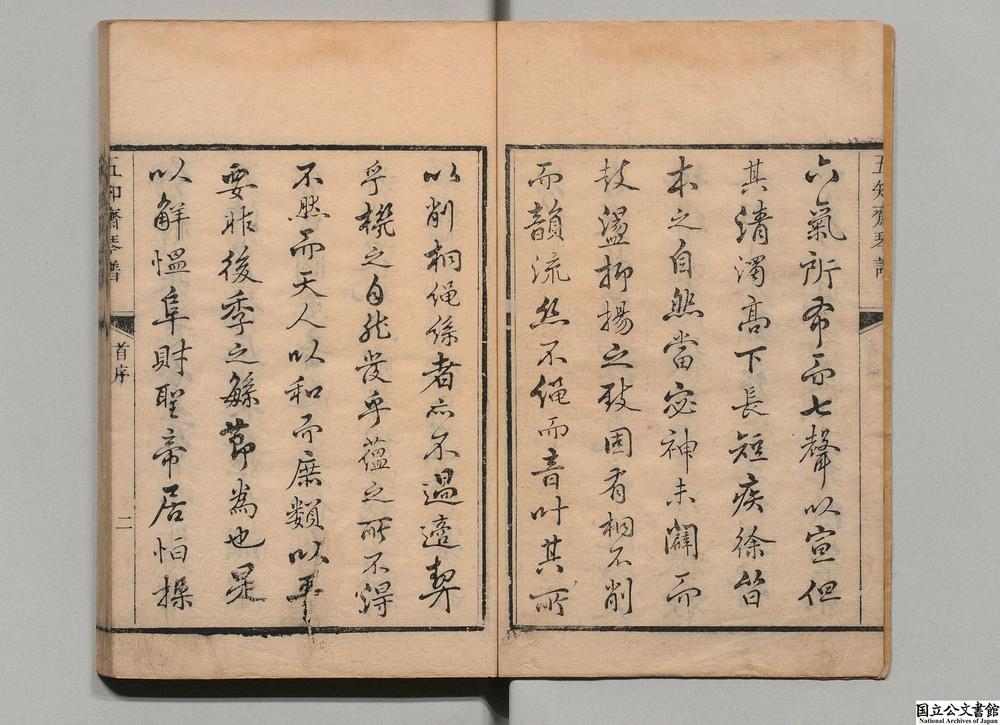 六氣所布而七聲以宣但
其清濁高下長短疾徐皆
本之自然當宓神未闢而
鼓盪抑揚之致固有桐不削
而韻流絲不繩而音叶其所
以削桐繩絲者亦不過適契
乎機之自然發乎蘊之所不得
不然而天人以和而庶類以平
要非後季之緐節為也是
以解慍阜財聖帝居恒操
五知齋琴譜
首序
二
国立公文書館
National Archives of Japan